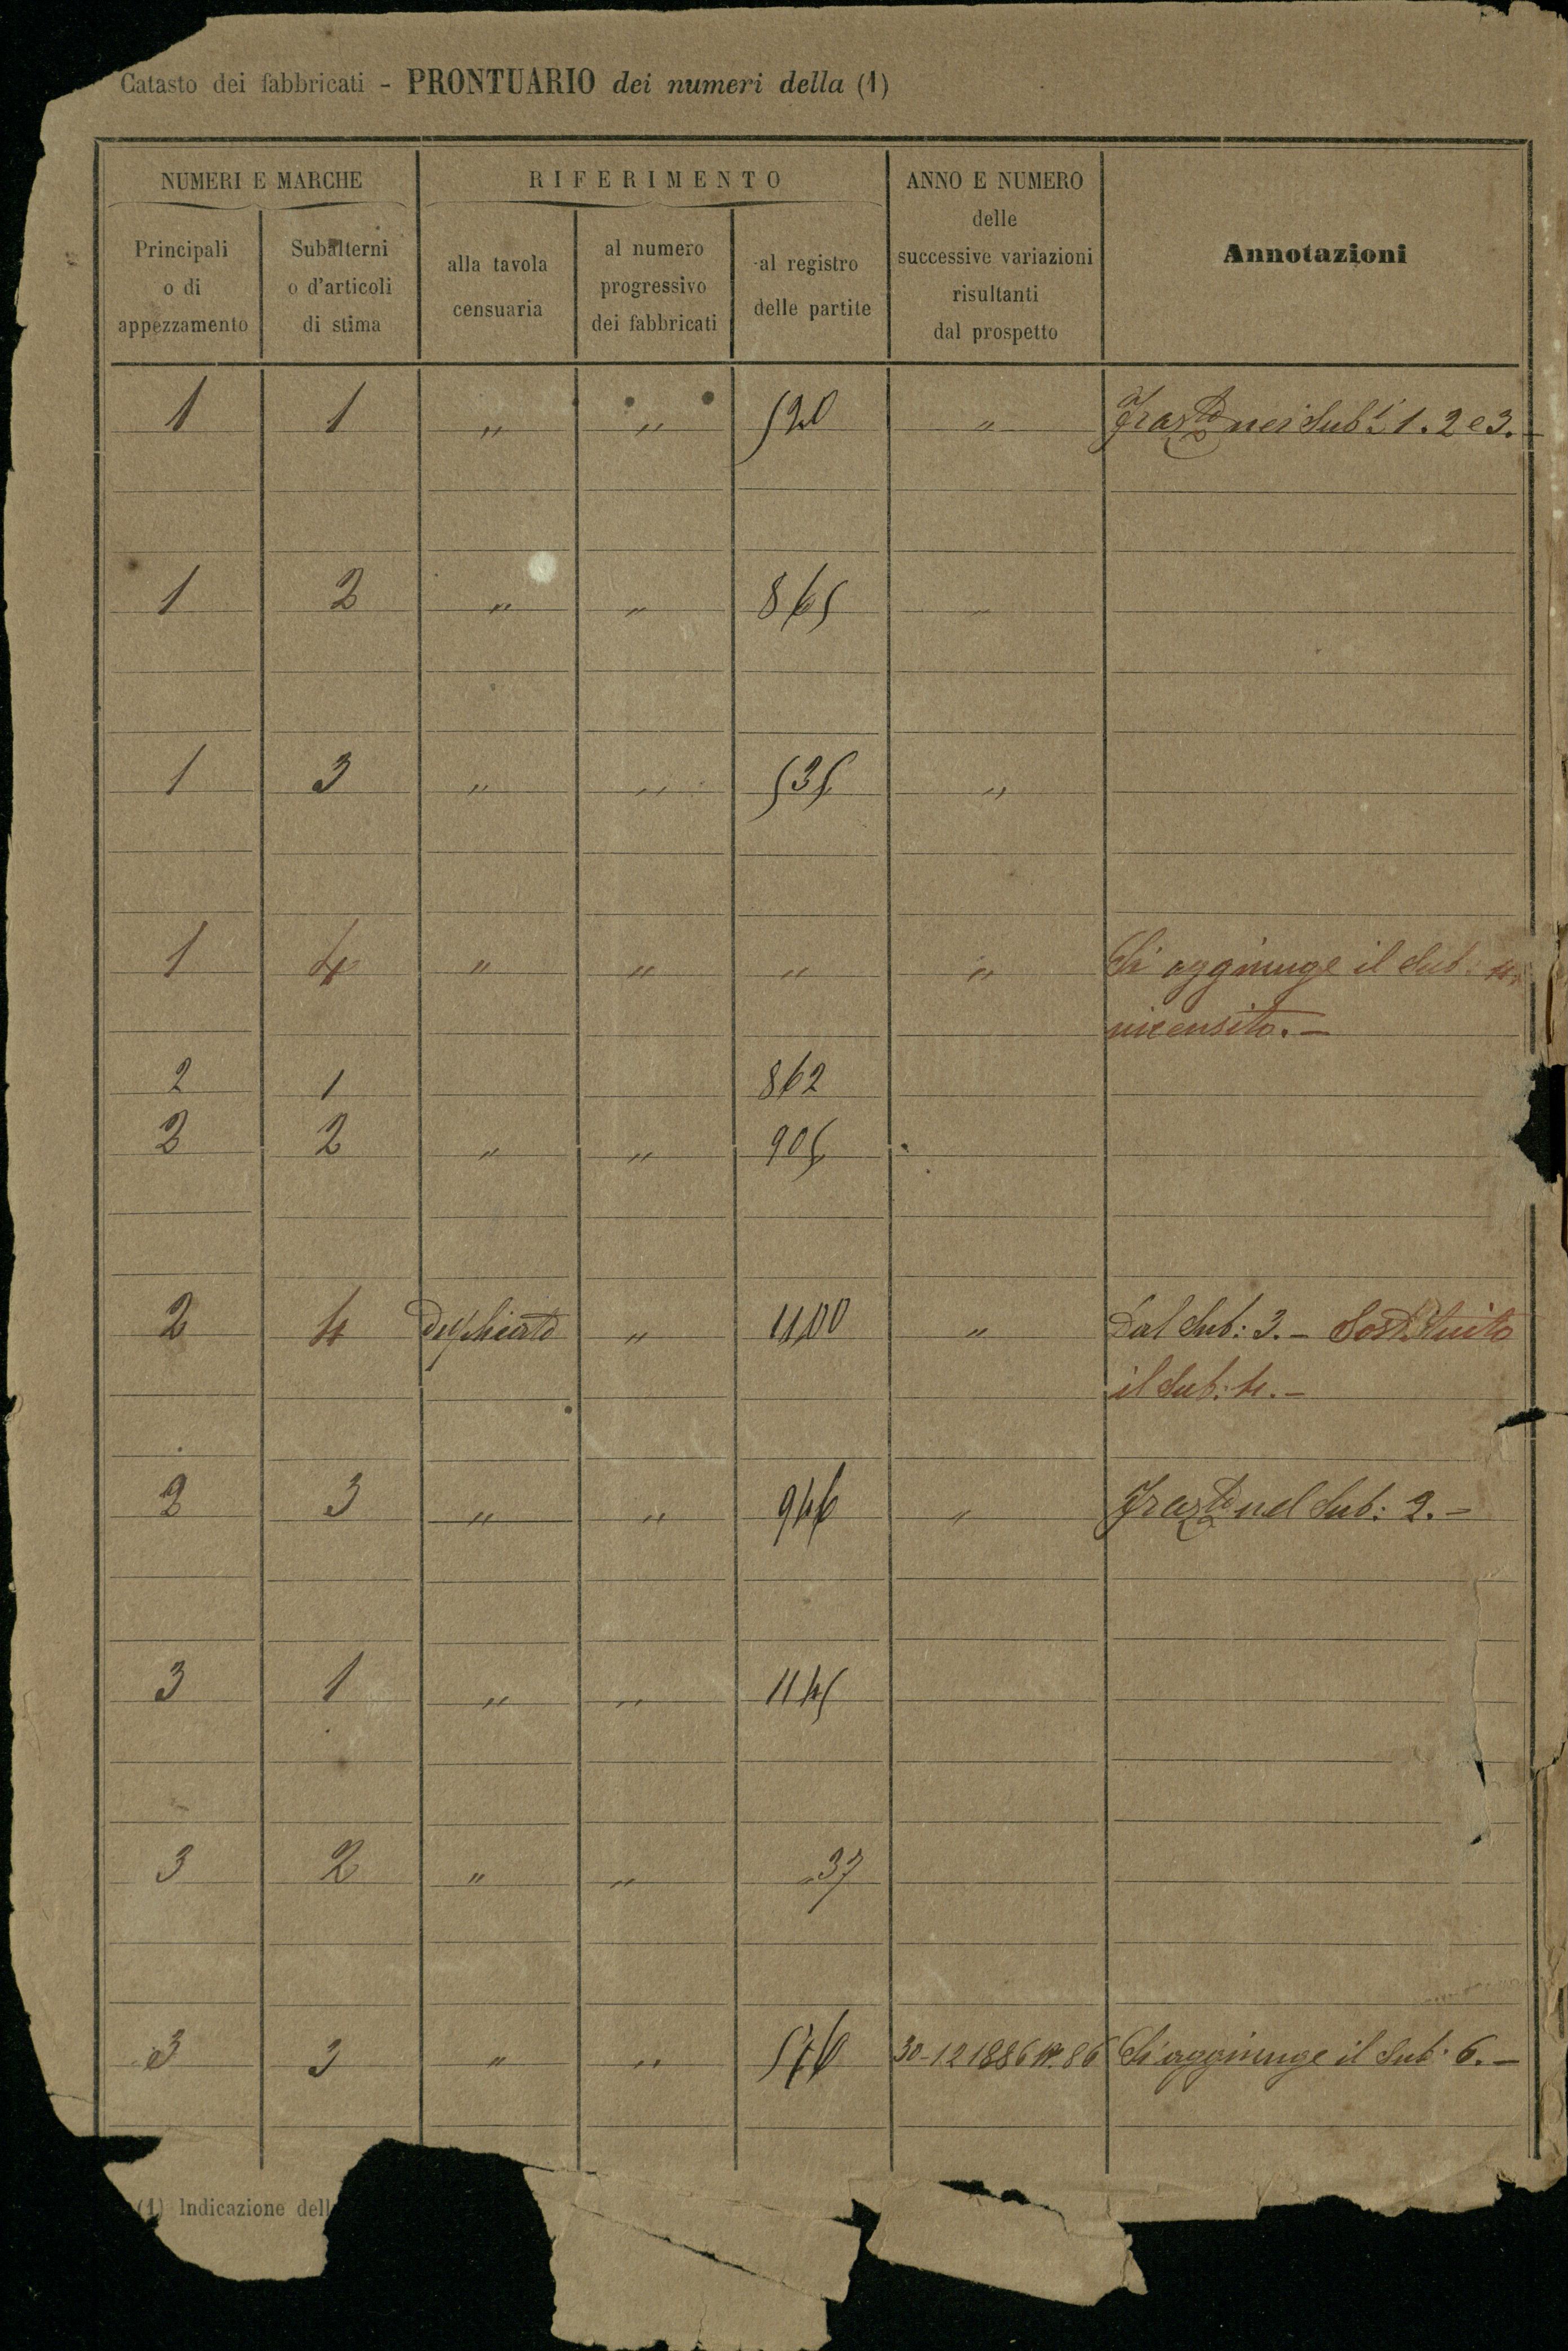 Catasto dei fabbricati - PRONTUARIO dei numeri della (1)
NUMERI E MARCHE
RIFERIMENTO
ANNO E NUMERO
delle
successive variazioni
risultanti
dal prospetto
Annotazioni
Principali
o di
appezzamento
Subalterni
o d'articoli
di stima
alla tavola
censuaria
al numero
progressivo
dei fabbricati
al registro
delle partite
1 1 " " 520 " nei Sub.i 1. 2 e 3. -
1 2 " " 865 "
1 3 " " 535 "
1 4 " " " " Si aggiunge il Sub: 4,
incensito. -
2 1 862
2 2 " " 905
2 4 duplicato " 1100 " Dal Sub: 3. - Sostituito
il Sub: 4. -
2 3 " " 946 " nel Sub: 2. -
3 1 " " 1145
3 2 " " 37
3 3 " " 30-12 1886 N. 86 Si aggiunge il Sub: 6. -
(1) Indicazione dell